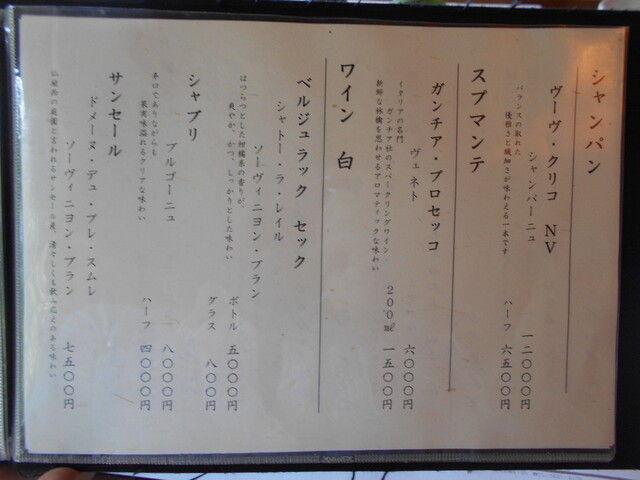 シャンパン
ヴーヴ・クリコ NV
シャンパーニュ
バランスの取れた
優雅さと繊細さが味わえる一本です
一二〇〇〇円
ハーフ 六五〇〇円
スプマンテ
ガンチア・プロセッコ
ヴェネト
イタリアの名門
ガンチア社のスパークリングワイン
新鮮な林檎を思わせるアロマティックな味わい
六〇〇〇円
200㎖ 一五〇〇円
ワイン 白
ベルジュラック セック
シャトー・ラ・レイル
ソーヴィニヨン・ブラン
はつらつとした柑橘系の香りが、
爽やか、かつ、しっかりとした味わい
ボトル 五〇〇〇円
グラス 八〇〇円
シャブリ
ブルゴーニュ
辛口でありながらも
果実味溢れるクリアな味わい
八〇〇〇円
ハーフ 四〇〇〇円
サンセール
ドメーヌ・デュ・プレ・スムレ
ソーヴィニヨン・ブラン
仏屈指の庭園と言われるサンセール産、清々しくも飲み応えのある味わい
七五〇〇円